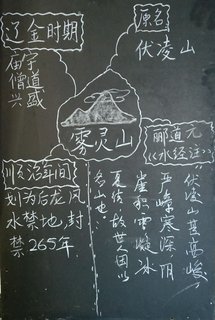 辽金时期
庙宇
僧道
兴盛
原名
伏凌山
雾灵山
郦道元
《水经注》
伏凌山甚高峻,
严嶂寒深,阴
崖积雪,凝冰
夏结,故世因以
名山也。
顺治年间
划为后龙风
水禁地,封
禁265年.